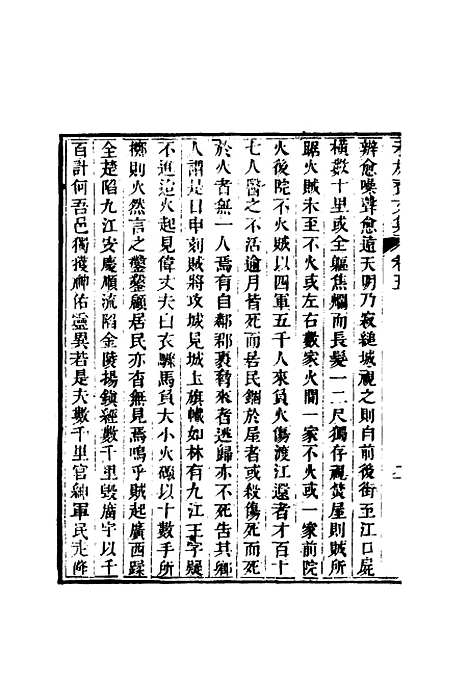 卷五
辨愈噪聲愈遠天明乃寂縋城視之則自前後街至江口屍
橫數十里或全軀焦爛而長髮一二尺獨存視焚屋則賊所
踞火賊未至不火或左右數家火間一家不火或一家前院
火後院不火賊以四軍五千人來負火傷渡江還者才百十
七人醫之不活逾月皆死而居民錮於屋者或殺傷死而死
於火者無一人焉有自鄰郡裹脅來者逃歸亦不死告其鄉
人謂是日申刻賊將攻城見城上旗幟如林有九江王字疑
不進迨火起見偉丈夫白衣騎馬負大小火礮以十數手所
擲則火然言之鑿鑿顧居民亦杳無見焉嗚乎賊起廣西蹂
全楚陷九江安慶順流陷金陵揚鎮經數千里毀廟宇以千
百計何吾邑獨獲神佑靈異若是夫數千里官紳軍民